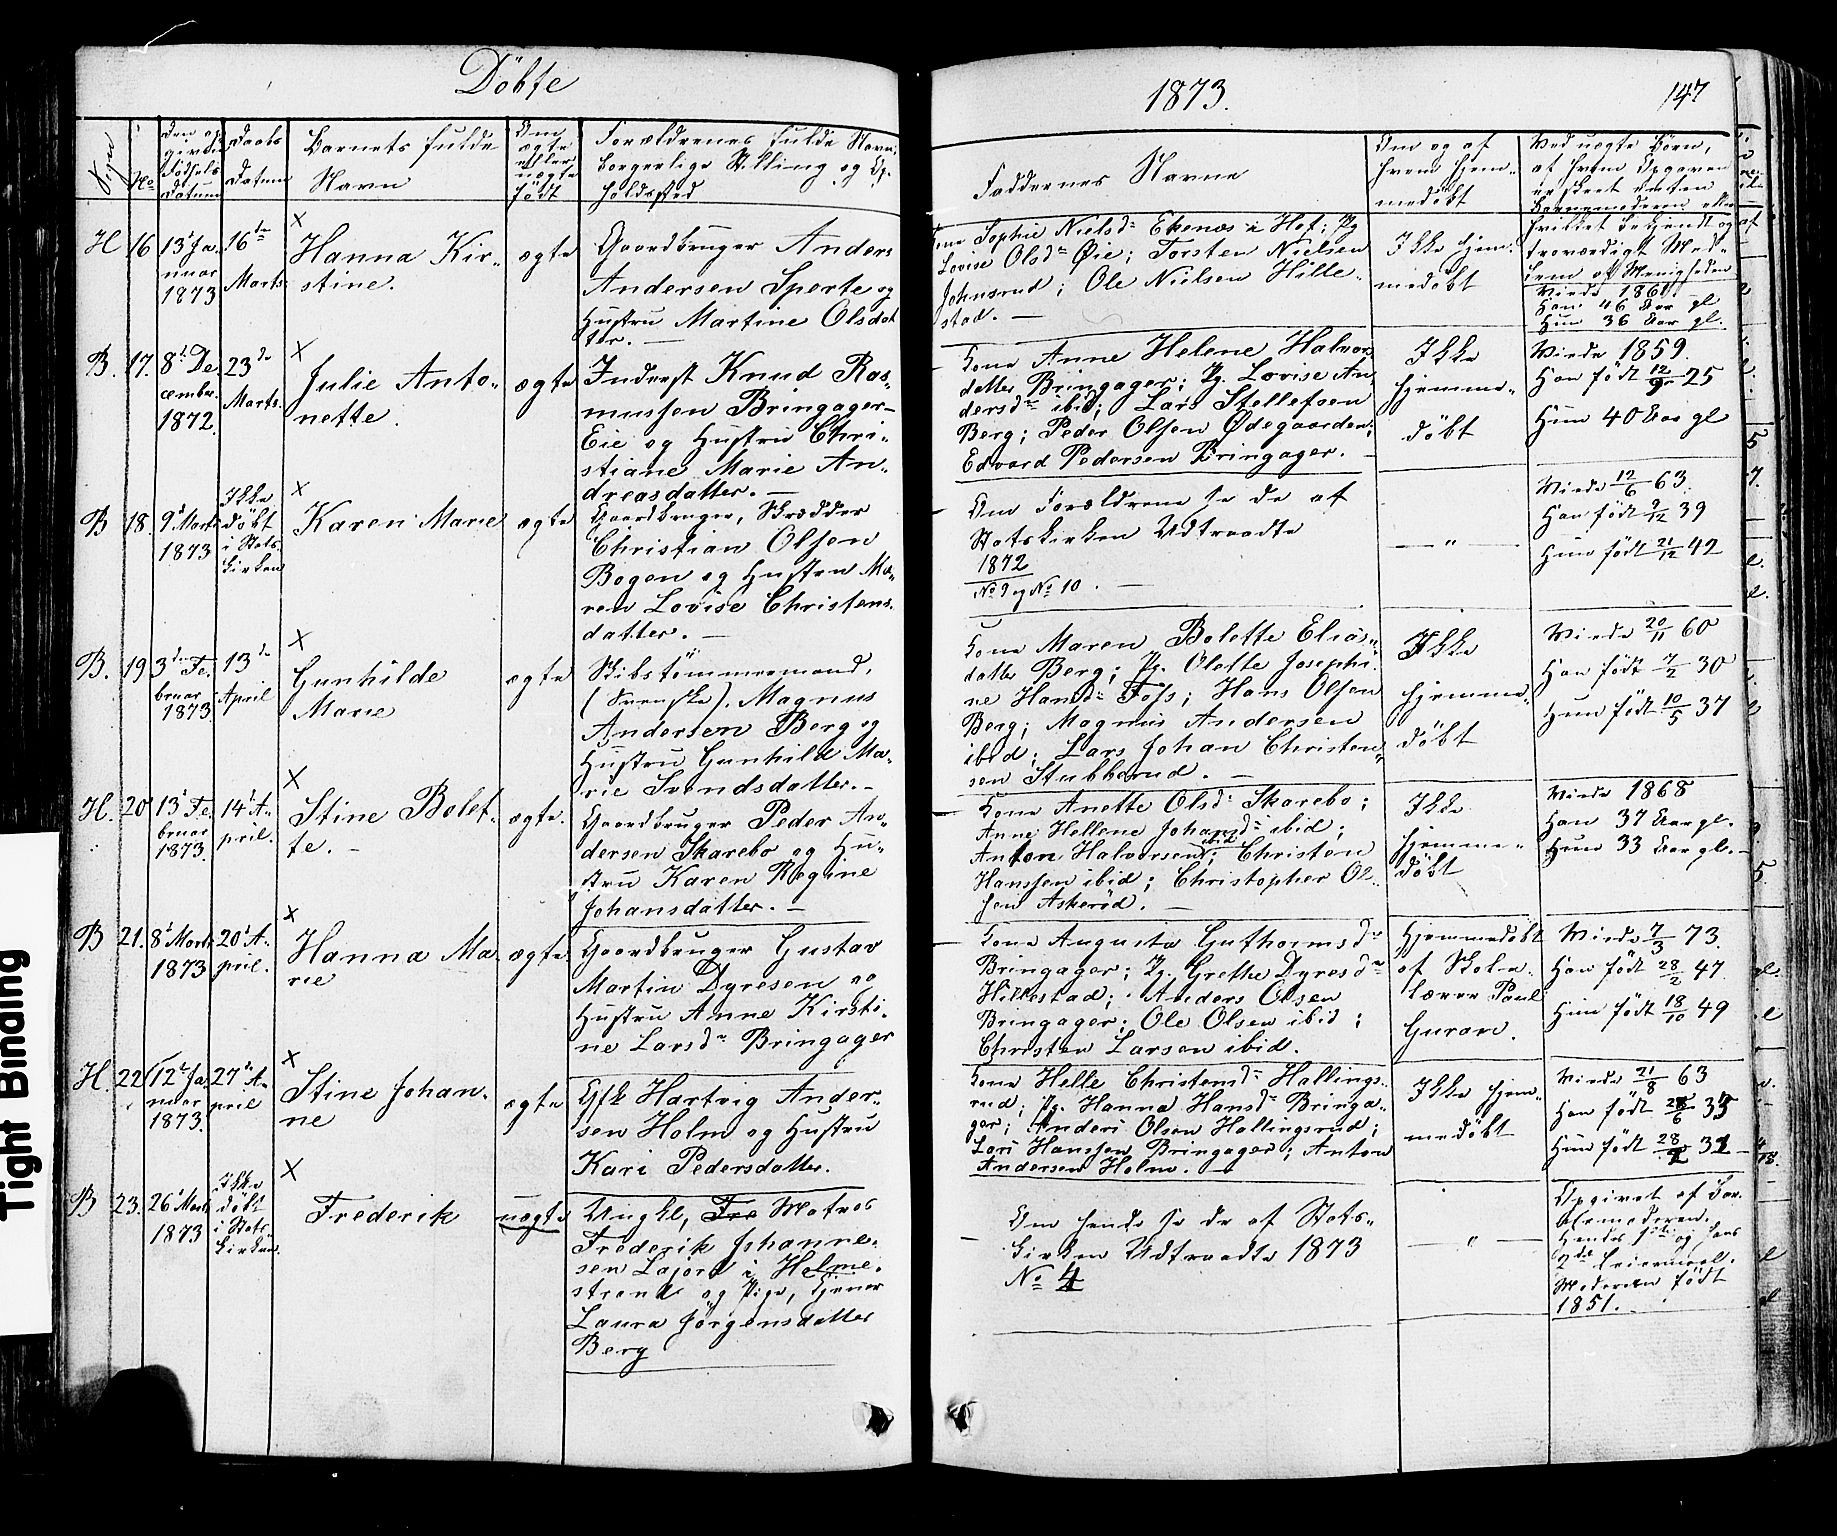 Döbte
1873.
147
Sogn
No
Den op
givne
Födsels
Datum
Daabs
Datum
Barnets fulde
Navn
Om
ægte
eller
uægte
födt
Forældrenes fulde Navn,
borgerlige Stilling og Op-
holdssted
Faddernes Navne
Om og af
hvem hjem-
medöbt
Ved uægte Börn,
af hvem Opgaven
er skeet enten
Barnemoderen eller
hvilket bekjendt og
troværdigt Med-
lem af Menigheden
H 16 13' Ja-
nuar
1873
16de
Marts
X
Hanna Kir-
stine.
ægte
Gaardbruger Anders
Andersen Sperte og
Hustru Martine Olsdat
ter. —
Kone Sophie Nielsdr Ekenæs i Hof; Pg
Lovise Olsdr Øie; Torsten Nielsen
Johnsrud; Ole Nielsen Hille-
stad. —
Ikke hjem-
medöbt
Viede 1861.
Han 46 Aar gl
Hun 36 Aar gl.
B. 17. 8' De
cember
1872.
23de
Marts.
X
Julie Anto-
nette.
ægte
Inderst Knud Ras-
mussen Bringager-
Eie og Hustru Chri-
stiane Marie An-
dreasdatter. —
Kone Anne Helene Halvors
datter Bringager; Pg. Lovise An
dersdr ibid; Lars Stellefsen
Berg; Peder Olsen Ødegaarden;
Edvard Pedersen Bringager. —
Ikke
hjemme-
döbt
Viede 1859.
Han födt 12/9 25
Hun 40 Aar gl
B 18. 9' Marts
1873
Ikke
döbt
i Stats
kirken
X
Karen Marie
ægte
Gaardbruger, Skrædder
Christian Olsen
Bogen og Hustru Ma-
ren Lovise Christens-
datter. —
Om Forældrene se de af
Statskirken Udtraadte
1872
No 9 og No 10. —
— " —
Viede 12/6 63.
Han födt 9/12 39
Hun födt 21/12 42
B. 19 3die Fe-
bruar
1873
13de
April
X
Gunhilde
Marie
ægte
Skibstömmermand,
(Svenske), Magnus
Andersen Berg og
Hustru Gunhild Ma-
rie Svendsdatter. —
Kone Maren Bolette Elias-
datter Berg; Pg. Olette Josephi-
ne Hansdr Foss; Hans Olsen
Berg; Magnus Andersen
ibid; Lars Johan Christen-
sen Stubberud. —
Ikke
hjemme-
döbt
Viede 20/11 60
Han födt 7/2 30
Hun födt 10/5 37
H. 20 13' Fe-
bruar
1873.
14' A-
pril.
X
Stine Bolet-
te. —
ægte.
Gaardbruger Peder An-
dersen Skarebo og Hu-
stru Karen Regine
Johansdatter. —
Kone Anette Olsdr Skarebo;
Anne Hellene Johansdr ibid;
Anton Halvorsen ibid; Christen
Hanssen ibid; Christopher Ol-
sen Askeröd. —
Ikke
hjemme-
döbt
Viede 1868
Han 37 Aar gl.
Hun 33 Aar gl. —
B 21. 8' Marts
1873
20' A-
pril.
X
Hanna Ma-
rie
ægte
Gaardbruger Gustav
Martin Dyresen og
Hustru Anne Kirsti-
ne Larsdr Bringager
Kone Augusta Guthormsdr
Bringager; Pg. Grethe Dyresdr
Hillestad; Anders Olsen
Bringager; Ole Olsen ibid;
Christen Larsen ibid.
Hjemmedöbt
af Skole-
lærer Paul
Guron.
Viede 7/3 73.
Han födt 28/2 47
Hun födt 18/10 49
H. 22 12te Ja-
nuar
1873.
27' A-
pril
X
Stine Johan-
ne
ægte
Gfk Hartvig Ander-
sen Holm og Hustru
Kari Pedersdatter.
Kone Helle Christensdr Hallings-
rud; Pg. Hanna Hansdr Bringa-
ger; Anders Olsen Hallingsrud;
Lars Hanssen Bringager; Anton
Andersen Holm. —
Ikke hjem-
medöbt
Viede 21/8 63
Han födt 28/6 35
Hun födt 28/2 31
B 23. 26' Marts
1873
Ikke
döbt
i Stats-
kirken.
X
Frederik
uægte
Ungkl, Fre Matros
Frederik Johanne-
sen Lajord i Holme-
strand og Pige, tjener
Laura Jörgensdatter
Berg
Om hende se de af Stats-
kirken Udtraadte 1873
No 4
— " —
Opgivet af Bar-
nemoderen.
Hendes 1ste og hans
2det Leiermaal.
Moderen födt
1851.
Tight Binding